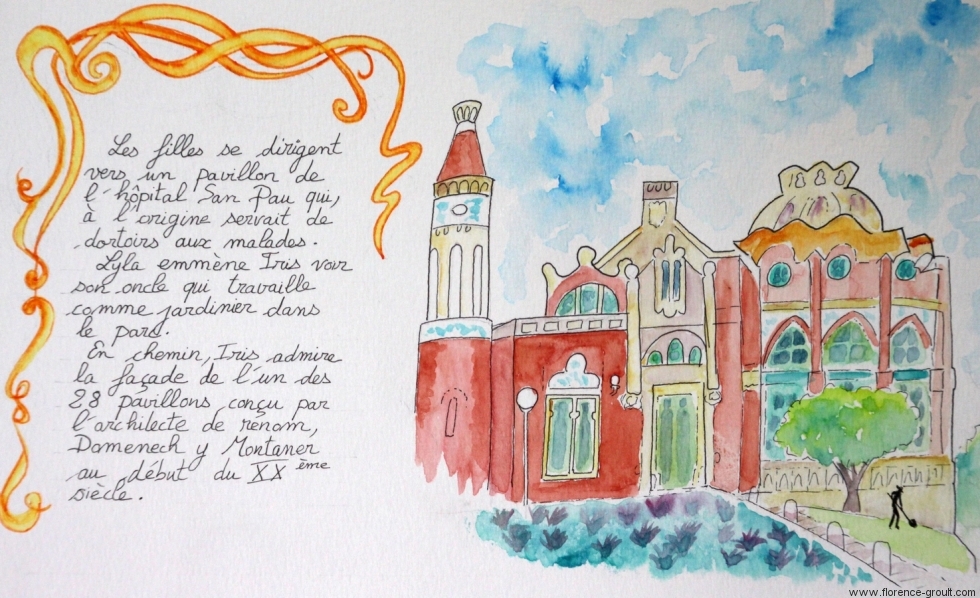 Les filles se dirigent
vers un pavillon de
l'hôpital San Pau qui,
à l'origine servait de
dortoirs aux malades.
Lyla emmène Iris voir
son oncle qui travaille
comme jardinier dans
le parc.
En chemin, Iris admire
la façade de l'un des
28 pavillons conçu par
l'architecte de renom,
Domenech y Montaner
au début du XXème
siècle.
www.florence-groult.com